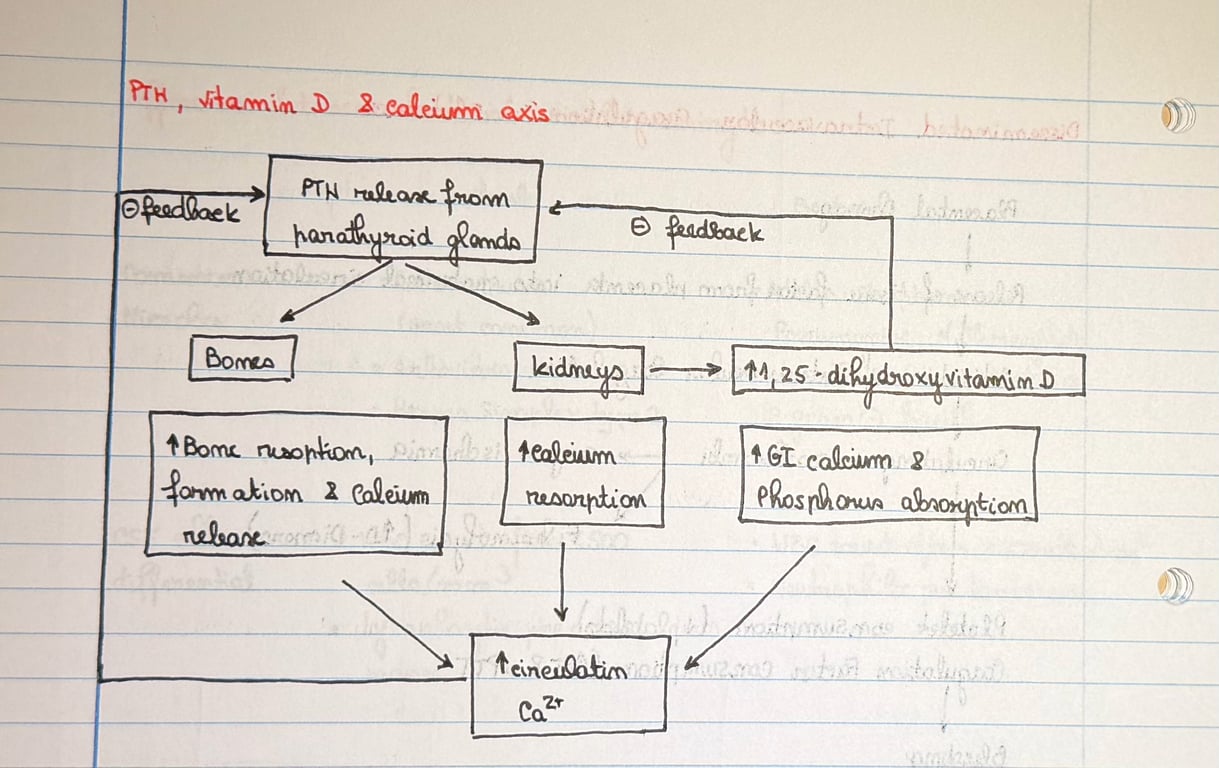 PTH, vitamin D & calcium axis
PTH release from
parathyroid glands
⊖feedback
⊖ feedback
Bones
kidneys
↑1,25-dihydroxyvitamin D
↑Bone resoption,
formation & Calcium
release
↑calcium
resorption
↑GI calcium &
Phosphorus absorption
↑circulatin
Ca²⁺